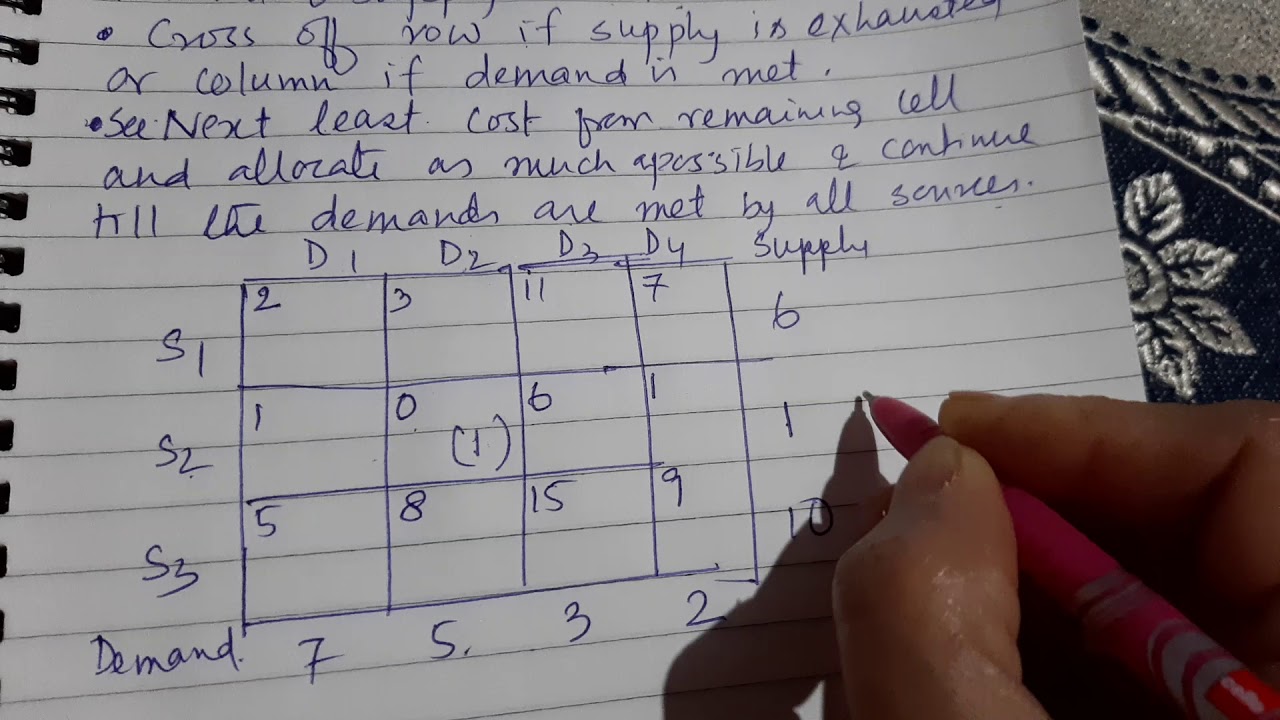 • Cross off row if supply is exhausted
or column if demand is met.
• See Next least cost from remaining cell
and allocate as much apossible & continue
till the demands are met by all sources.
D1 D2 D3 D4 Supply
S1 2 3 11 7 6
S2 1 0 (1) 6 1 1
S3 5 8 15 9 10
Demand. 7 5. 3 2